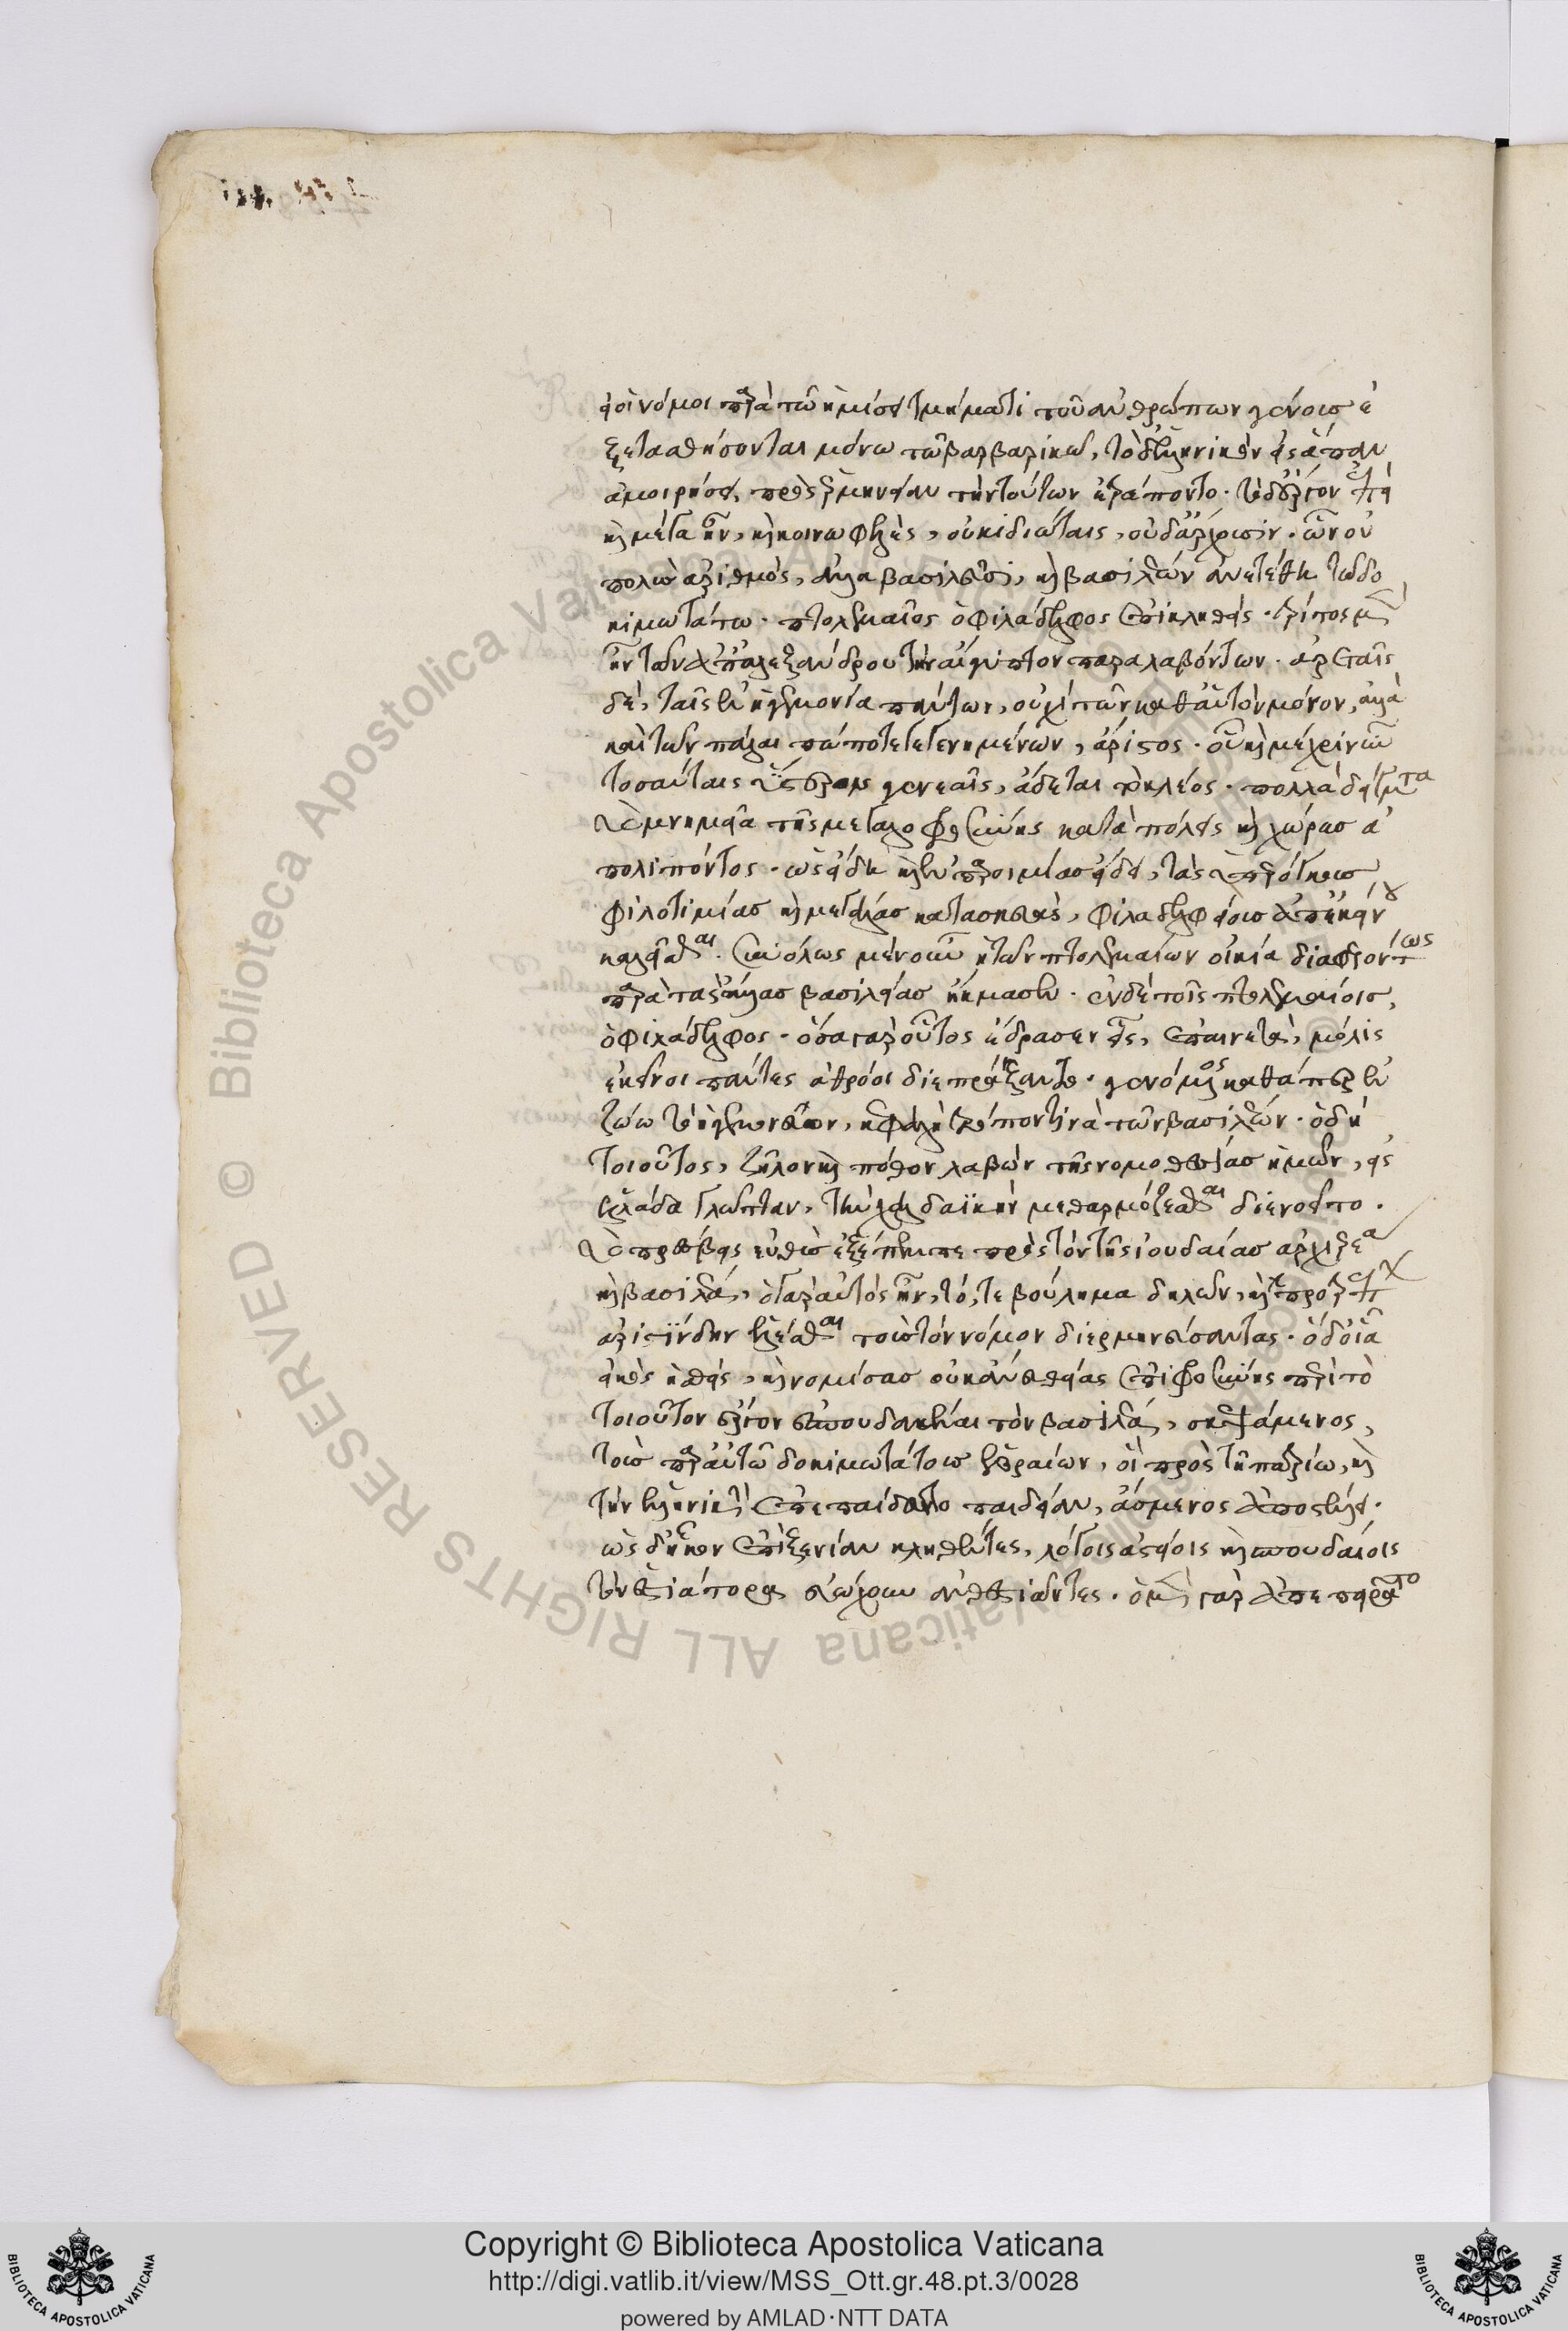 εἰ οἱ νόμοι παρὰ τῶ ἡμίσει τμήματι τοῦ ἀνθρώπων γένους ἐ
ξετασθήσονται μόνω τῶ βαρβαρικῶ, τὸ δ' ἑλληνικὸν εἰς ἅπαν
ἀμοιρήσει, πρὸς ἑρμηνείαν τὴν τούτων ἐτράποντο. τὸ δ' ἔργον ἐπεὶ
καὶ μέγα ἦν, καὶ κοινωφελὲς, οὐκ ἰδιώταις, οὐδ' ἄρχουσιν. ὧν οὐ
πολὺς ἀριθμὸς, ἀλλὰ βασιλεῦσι, καὶ βασιλέων ἀνετέθη τῶ δο
κιμωτάτω. πτολεμαῖος ὁ φιλάδελφος ἐπικληθεὶς. τρίτος μὲν
ἦν τῶν ἀπ' ἀλεξάνδρου τὴν αἴγυπτον παραλαβόντων. ἀρεταῖς
δὲ, ταῖς ἐν ἡγεμονία πάντων, οὐχὶ τῶν καθ' αὑτὸν μόνον, ἀλλὰ
καὶ τῶν πάλαι πώποτε γεγενημένων, ἄριστος. οὗ καὶ μέχρι νῦν
τοσαύταις ὕστερον γενεαῖς, ἄδεται τὸ κλέος. πολλὰ δείγματα
καὶ μνημεῖα τῆς μεγαλοφροσύνης κατὰ πόλεις καὶ χώρας ἀ
πολιπόντος. ὡς ἤδη καὶ ἐν παροιμίας εἴδει, τὰς ὑπερόγκους
φιλοτιμίας καὶ μεγάλας κατασκευὰς, φιλαδελφείους ἀπ' ἐκείνου
καλεῖσθαι. συνόλως μὲν οὖν ἡ τῶν πτολεμαίων οἰκία διαφερόντως
παρὰ τὰς ἄλλας βασιλείας ἤκμασεν. ἐν δὲ τοῖς πτολεμαίοις,
ὁ φιλάδελφος. ὅσα γὰρ οὗτος ἔδρασεν εἷς, ἐπαινετὰ, μόλις
ἐκεῖνοι πάντες ἀθρόοι διεπράξαντο. γενόμενος καθάπερ ἐν
ζώω τὸ ἡγεμονεῦον, κεφαλὴ τρόπον τινὰ τῶν βασιλέων. ὁ δὴ
τοιοῦτος, ζῆλον καὶ πόθον λαβὼν τῆς νομοθεσίας ἡμῶν, εἰς
ἑλλάδα γλῶτταν, τὴν χαλδαϊκὴν μεθαρμόζεσθαι διενοεῖτο.
καὶ πρέσβεις εὐθὺς ἐξέπεμπε πρὸς τὸν τῆς ἰουδαίας ἀρχιερέα
καὶ βασιλέα, ὁ γὰρ αὐτὸς ἦν, τό, τε βούλημα δηλῶν, καὶ προτρέπων
ἀριστίνδην ἑλέσθαι τοὺς τὸν νόμον διερμηνεύσοντας. ὁ δ' οἷα
εἰκὸς ἡσθεὶς, καὶ νομίσας οὐκ ἄνευ θείας ἐπιφροσύνης περὶ τὸ
τοιοῦτον ἔργον ἐσπουδακέναι τὸν βασιλέα, σκεψάμενος,
τοὺς παρ' αὐτῶ δοκιμωτάτους ἑβραίων, οἳ πρὸς τῆ πατρίω, καὶ
τὴν ἑλληνικὴν ἐπεπαίδευντο παιδείαν, ἄσμενος ἀποστέλλει.
ὡς δ' ἧκον ἐπὶ ξενίαν κληθέντες, λόγοις ἀστείοις καὶ σπουδαίοις
τὸν ἑστιάτορα εὐώχουν ἀνθεστιῶντες. ὁ μὲν γὰρ ἀπεπειρᾶτο
Copyright © Biblioteca Apostolica Vaticana
http://digi.vatlib.it/view/MSS_Ott.gr.48.pt.3/0028
powered by AMLAD·NTT DATA